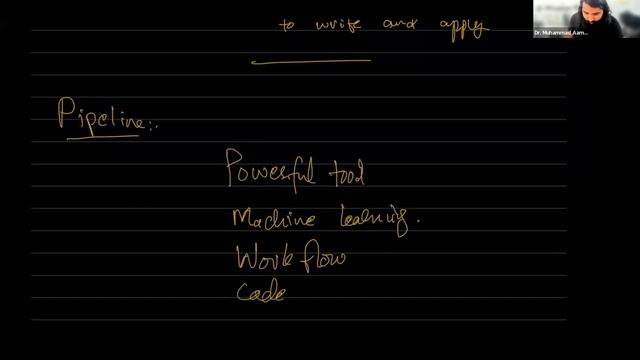 to write and apply
Dr. Muhammad Aam...
Pipeline:.
Powerful tool
Machine learning.
Workflow
Code